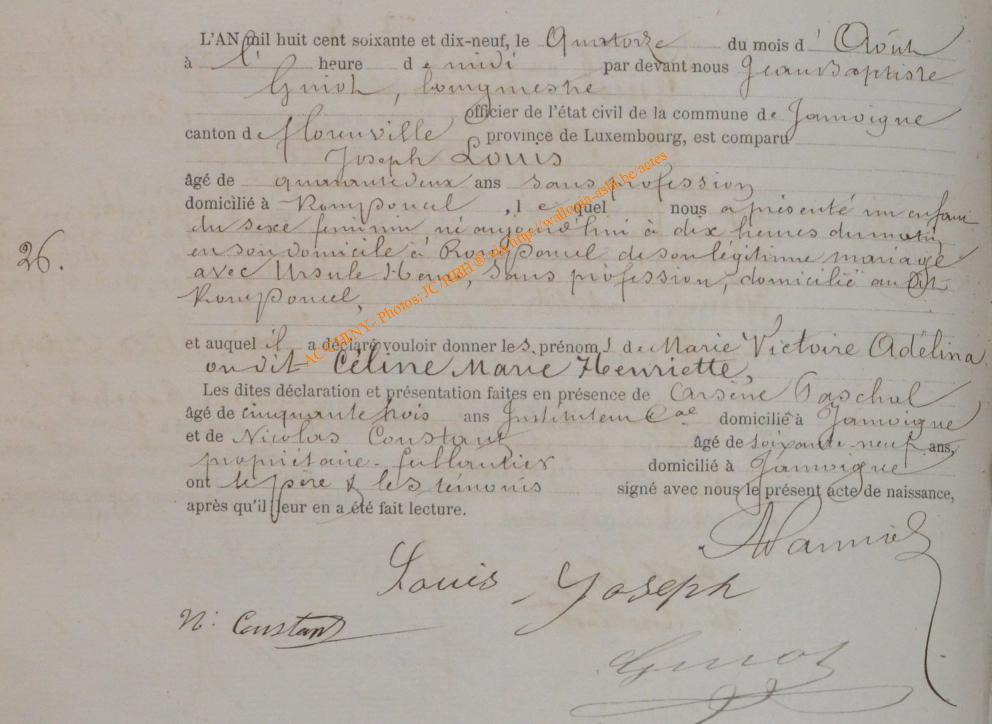 L'AN mil huit cent soixante et dix-neuf, le Quatorze du mois d' Août
à l' heure de midi par devant nous Jean Baptiste
Guiot, bourgmestre
officier de l'état civil de la commune de Jamoigne
canton de Florenville province de Luxembourg, est comparu
Joseph Louis
âgé de quarante deux ans sans profession
domicilié à Romponcel, le quel nous a présenté un enfant
du sexe feminin né aujourd'hui à dix heures du matin,
26.
en son domicile à Romponcel de son légitime mariage
avec Ursule Henry, sans profession, domicilié au dit
Romponcel,
et auquel il a déclaré vouloir donner les prénoms de Marie Victoire Adélina
ou dit Céline Marie Henriette,
Les dites déclaration et présentation faites en présence de Arsène Paschal
âgé de cinquante trois ans Instituteur Cal domicilié à Jamoigne
et de Nicolas Constant âgé de soixante-neuf ans,
propriétaire - domicilié à Jamoigne
ont le père & les témoins signé avec nous le présent acte de naissance,
après qu'il leur en a été fait lecture.
Louis Joseph
N. Constant
Guiot
ACCGHNY - Photos: JC/RBH @ via http://wallonia-asbl.be/actes